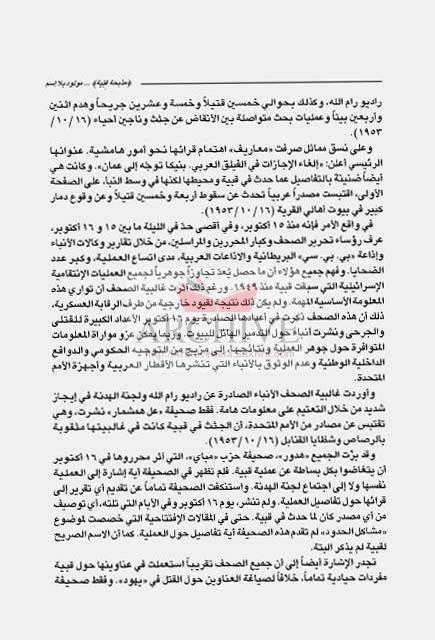 «مذبحة قبية» ... مولود بلا إسم
راديو رام الله، وكذلك بحوالي خمسين قتيلاً وخمسة وعشرين جريحاً وهدم اثنين
وأربعين بيتاً وعمليات بحث متواصلة بين الأنقاض عن جثث وناجين أحياء (١٦/ ١٠/
١٩٥٣).
وعلى نسق مماثل صرفت «معاريف» اهتمام قرائها نحو أمور هامشية. عنوانها
الرئيسي أعلن: «إلغاء الإجازات في الفيلق العربي. بنيكا توجّه إلى عمان». وكانت هي
أيضاً ضنينة بالتفاصيل عما حدث في قبية ومحيطها لكنها في وسط النبأ، على الصفحة
الأولى، اقتبست مصدراً عربياً تحدث عن سقوط أربعة وخمسين قتيلاً وعن وقوع دمار
كبير في بيوت أهالي القرية (١٩٥٣/١٠/١٦).
في واقع الأمر فإنه منذ ١٥ أكتوبر، وفي أقصى حدّ في الليلة ما بين ١٥ و ١٦ أكتوبر،
عرف رؤساء تحرير الصحف وكبار المحررين والمراسلين، من خلال تقارير وكالات الأنباء
وإذاعة «بي. بي. سي» البريطانية والاذاعات العربية، مدى اتساع العملية، وكبر عدد
الضحايا. وفهم جميع هؤلاء أن ما حصل يُعدّ تجاوزاً جوهرياً لجميع العمليات الإنتقامية
الإسرائيلية التي سبقت قبية منذ ١٩٤٩. ورغم ذلك آثرت غالبية الصحف أن تواري هذه
المعلومة الأساسية المهمة. ولم يكن ذلك نتيجة لقيود خارجية من طرف الرقابة العسكرية،
ذلك أن هذه الصحف ذكرت في أعدادها الصادرة يوم ١٦ أكتوبر الأعداد الكبيرة للقتلى
والجرحى ونشرت أنباء حول التدمير الهائل للبيوت. وربما يمكن عزو مواراة المعلومات
المتوافرة حول جوهر العملية ونتائجها، إلى مزيج من التوجيه الحكومي والدوافع
الداخلية الوطنية وعدم الوثوق بالأنباء التي تنشرها الأقطار العربية وأجهزة الأمم
المتحدة.
وأوردت غالبية الصحف الأنباء الصادرة عن راديو رام الله ولجنة الهدنة في إيجاز
شديد من خلال التعتيم على معلومات هامة. فقط صحيفة «عل همشمار» نشرت، وهي
تقتبس عن مصادر من الأمم المتحدة، أن الجثث في قبية كانت في غالبيتها مثقوبة
بالرصاص وشظايا القنابل (١٩٥٣/١٠/١٦).
و قد برّت الجميع «هدور»، صحيفة حزب «مباي»، التي آثر محرروها في ١٦ أكتوبر
أن يتغاضوا بكل بساطة عن عملية قبية. فلم تظهر في الصحيفة أية إشارة إلى العملية
نفسها ولا إلى اجتماع لجنة الهدنة. واستنكفت الصحيفة تماماً عن تقديم أي تقرير إلى
قرائها حول تفاصيل العملية. ولم تنشر، يوم ١٦ أكتوبر وفي الأيام التي تلته، أي توصيف
من أي مصدر كان لما حدث في قبية. حتى في المقالات الإفتتاحية التي خصصت لموضوع
«مشاكل الحدود» لم تقدم هذه الصحيفة أية تفاصيل حول العملية. كما أن الاسم الصريح
لقبية لم يذكر البتة.
تجدر الإشارة أيضاً إلى أن جميع الصحف تقريباً استعملت في عناوينها حول قبية
مفردات حيادية تماماً، خلافاً لصياغة العناوين حول القتل في «يهود». وفقط صحيفة
ARCHIVE